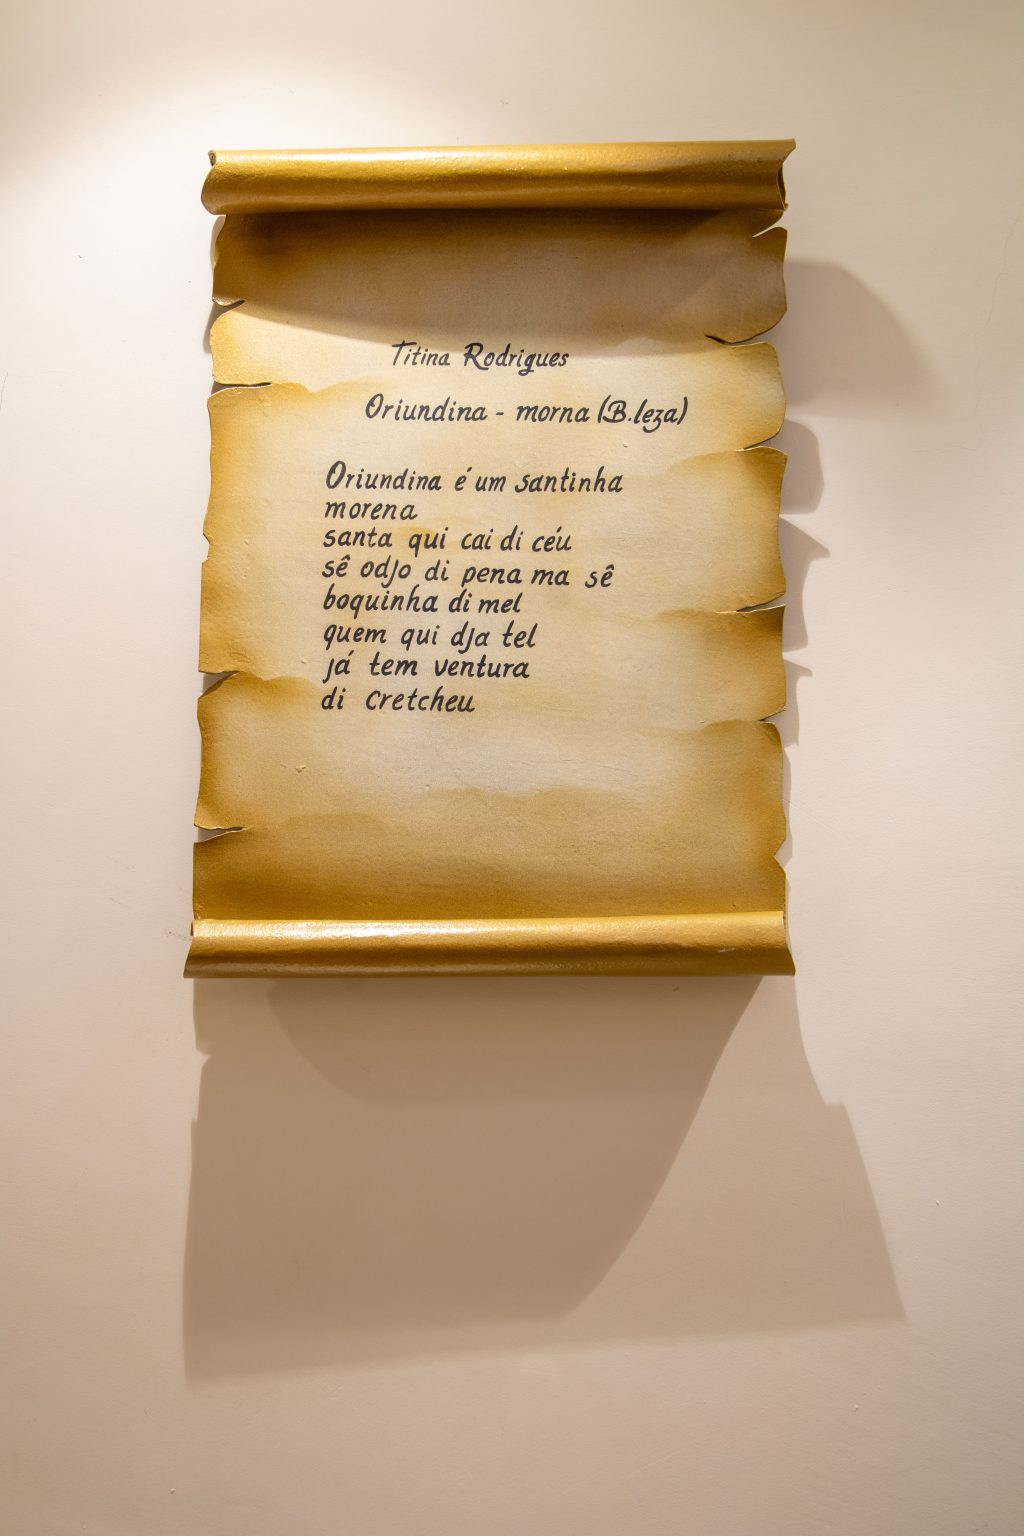 Titina Rodrigues
Oriundina - morna (B.leza)
Oriundina é um santinha
morena
santa qui cai di céu
sê odjo di pena ma sê
boquinha di mel
quem qui dja tel
já tem ventura
di cretcheu